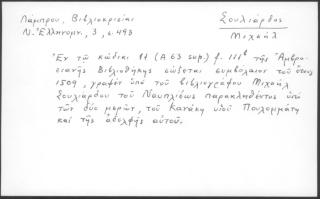 Λάμπρου, Βιβλιοκρισίαι
Ν. Ἑλληνομν., 3, σ. 493
Σουλιάρδος
Μιχαήλ
Ἐν τῷ κώδικι 11 (Α 63 sup.) f. 111ᵇ τῆς Ἀμβρο-
σιανῆς Βιβλιοθήκης σώζεται συμβόλαιον τοῦ ἔτους
1509, γραφὲν ὑπὸ τοῦ βιβλιογράφου Μιχαὴλ
Σουλιάρδου τοῦ Ναυπλιέως παρακληθέντος ὑπὸ
τῶν δύο μερῶν, τοῦ Κανάκη υἱοῦ Πουλομμάτη
καὶ τῆς ἀδελφῆς αὐτοῦ.